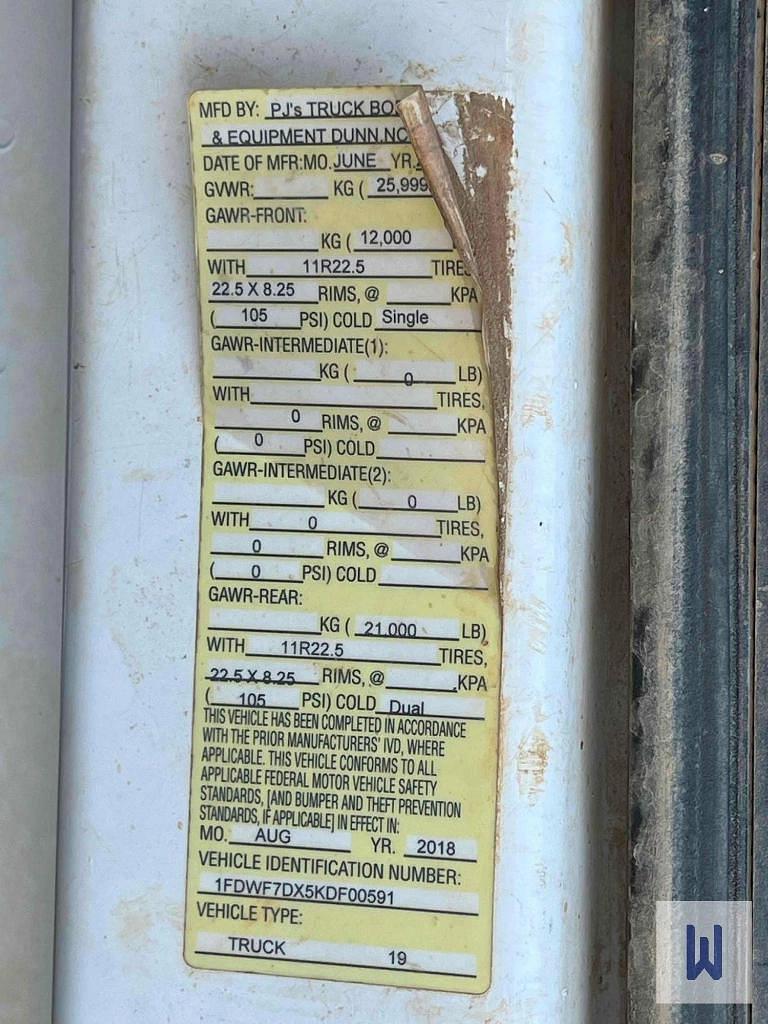 MFD BY: PJ's TRUCK BO
& EQUIPMENT DUNN,NC
DATE OF MFR:MO. JUNE YR.
GVWR: KG ( 25,999
GAWR-FRONT:
KG ( 12,000
WITH 11R22.5 TIRES
22.5 X 8.25 RIMS, @ KPA
( 105 PSI) COLD Single
GAWR-INTERMEDIATE(1):
KG ( 0 LB)
WITH TIRES,
0 RIMS, @ KPA
( 0 PSI) COLD
GAWR-INTERMEDIATE(2):
KG ( 0 LB)
WITH 0 TIRES,
0 RIMS, @ KPA
( 0 PSI) COLD
GAWR-REAR:
KG ( 21,000 LB)
WITH 11R22.5 TIRES,
22.5 X 8.25 RIMS, @ KPA
( 105 PSI) COLD Dual
THIS VEHICLE HAS BEEN COMPLETED IN ACCORDANCE
WITH THE PRIOR MANUFACTURERS' IVD, WHERE
APPLICABLE. THIS VEHICLE CONFORMS TO ALL
APPLICABLE FEDERAL MOTOR VEHICLE SAFETY
STANDARDS, [AND BUMPER AND THEFT PREVENTION
STANDARDS, IF APPLICABLE] IN EFFECT IN:
MO. AUG YR. 2018
VEHICLE IDENTIFICATION NUMBER:
1FDWF7DX5KDF00591
VEHICLE TYPE:
TRUCK 19
W